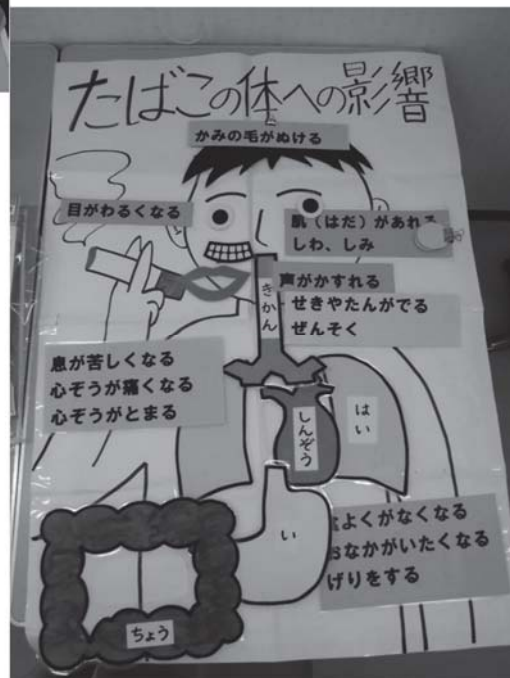 たばこの体への影響
かみの毛がぬける
目がわるくなる
肌（はだ）があれる
しわ、しみ
声がかすれる
きかん
せきやたんがでる
ぜんそく
息が苦しくなる
心ぞうが痛くなる
心ぞうがとまる
しんぞう
はい
い
よくがなくなる
おなかがいたくなる
げりをする
ちょう